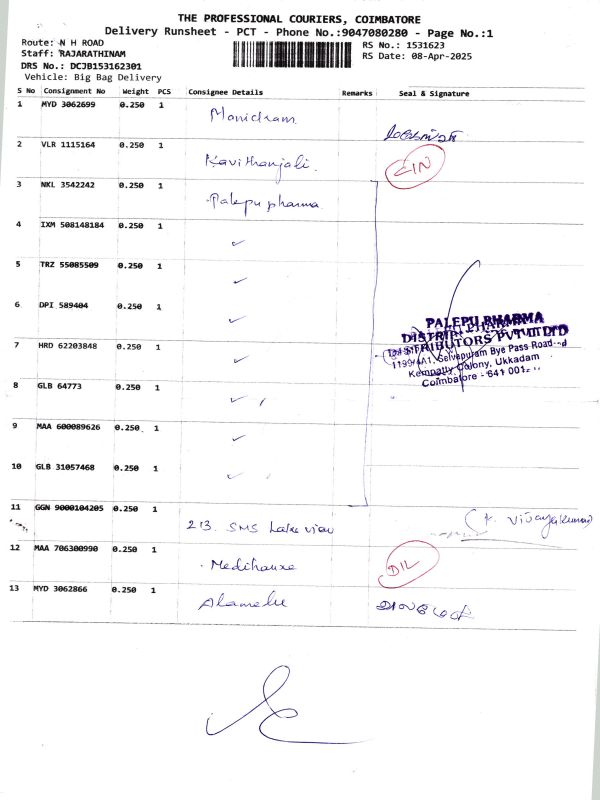 THE PROFESSIONAL COURIERS, COIMBATORE
Delivery Runsheet - PCT - Phone No.:9047080280 - Page No.:1
Route: N H ROAD
RS No.: 1531623
Staff: RAJARATHINAM
RS Date: 08-Apr-2025
DRS No.: DCJB153162301
Vehicle: Big Bag Delivery
S No Consignment No Weight PCS Consignee Details Remarks Seal & Signature
1 MYD 3062699 0.250 1 Manickam
2 VLR 1115164 0.250 1 Kavithanjali
3 NKL 3542242 0.250 1 Palepu pharma
4 IXM 508148184 0.250 1 ✓
5 TRZ 55085509 0.250 1 ✓
6 DPI 589404 0.250 1 ✓
7 HRD 62203848 0.250 1 ✓
8 GLB 64773 0.250 1 ✓
9 MAA 600089626 0.250 1 ✓
10 GLB 31057468 0.250 1 ✓
PALEPU PHARMA
DISTRIBUTORS PVT LTD
1199/4A1, Selvapuram Bye Pass Road
Kempatty Colony, Ukkadam
Coimbatore - 641 001.
11 GGN 9000104205 0.250 1 213. SMS Lake view K. Vijayakumar
12 MAA 706300990 0.250 1 DIL
13 MYD 3062866 0.250 1 Alamelu